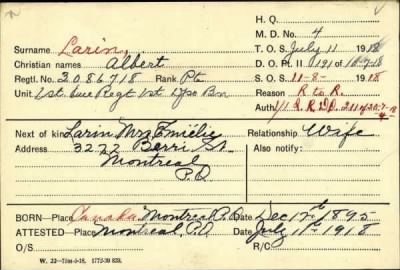 H. Q.
M. D. No. 4
Surname Larin, T. O. S. July 11 1918
Christian names Albert D. O. Pt. II 191 of 10-7-18
Regtl. No. 3086718 Rank Pte S. O. S. 11-8- 1918
Unit 1st Que Regt 1st Dpo Bn Reason R to R.
Auth.
Next of kin Larin Mrs Emélie Relationship Wife
Address 3222 Berri St. Also notify:
Montreal
P.Q.
BORN—Place Canada Montreal P.Q. Date Dec 17th 1895
ATTESTED—Place Montreal P.Q. Date July 11th 1918
O/S R/C
W. 22